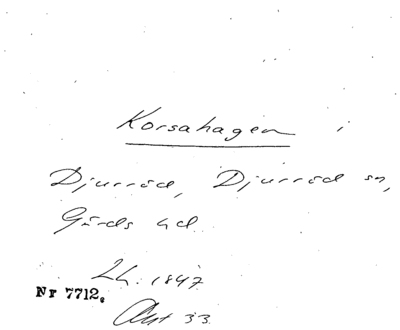 Korsahagen i
Djurröd, Djurröd sn,
Gärds hd
LL. 1847
Nr 7712.
Akt 33